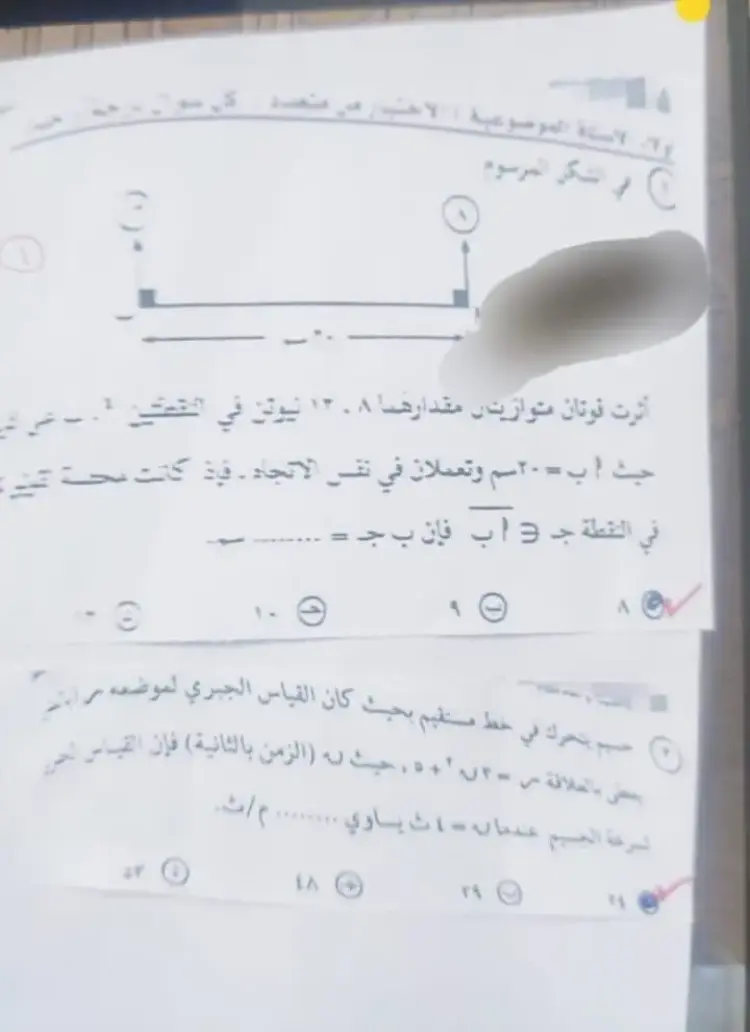 الأسئلة الموضوعية (الاختيار من متعدد) كل سؤال
١ في الشكل المرسوم
٨
ب
٢٠ سم
أثرت قوتان متوازيتان مقدارهما ٨ ، ١٢ نيوتن في النقطتين ب على
حيث أ ب = ٢٠سم وتعملان في نفس الاتجاه. فإذا كانت محصلة
في النقطة جـ ∈ أ ب فإن ب جـ = ......... سم.
٨ ب ٩ جـ ١٠
جسم يتحرك في خط مستقيم بحيث كان القياس الجبري لموضعه س
يعطى بالعلاقة س = ٣ن٢ + ٥، حيث ن (الزمن بالثانية) فإن القياس
لسرعة الجسم عندما ن = ٤ ث يساوي ........ م/ث.
٢٤ ب ٢٩ جـ ٤٨ د ٥٣